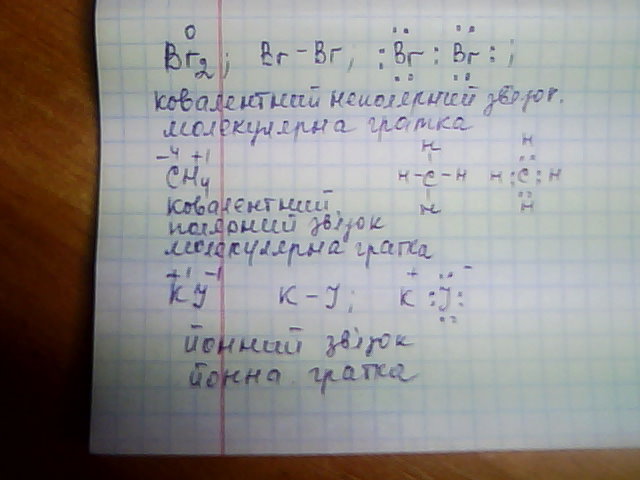 0
Br2; Br–Br; :Br:Br:;
ковалентний неполярний зв'язок.
молекулярна гратка
-4 +1 H H
CH4 H–C–H H:C:H
ковалентний H H
полярний зв'язок
молекулярна гратка
+1 -1 + -
KJ K–J; K :J:
йонний зв'язок
йонна гратка